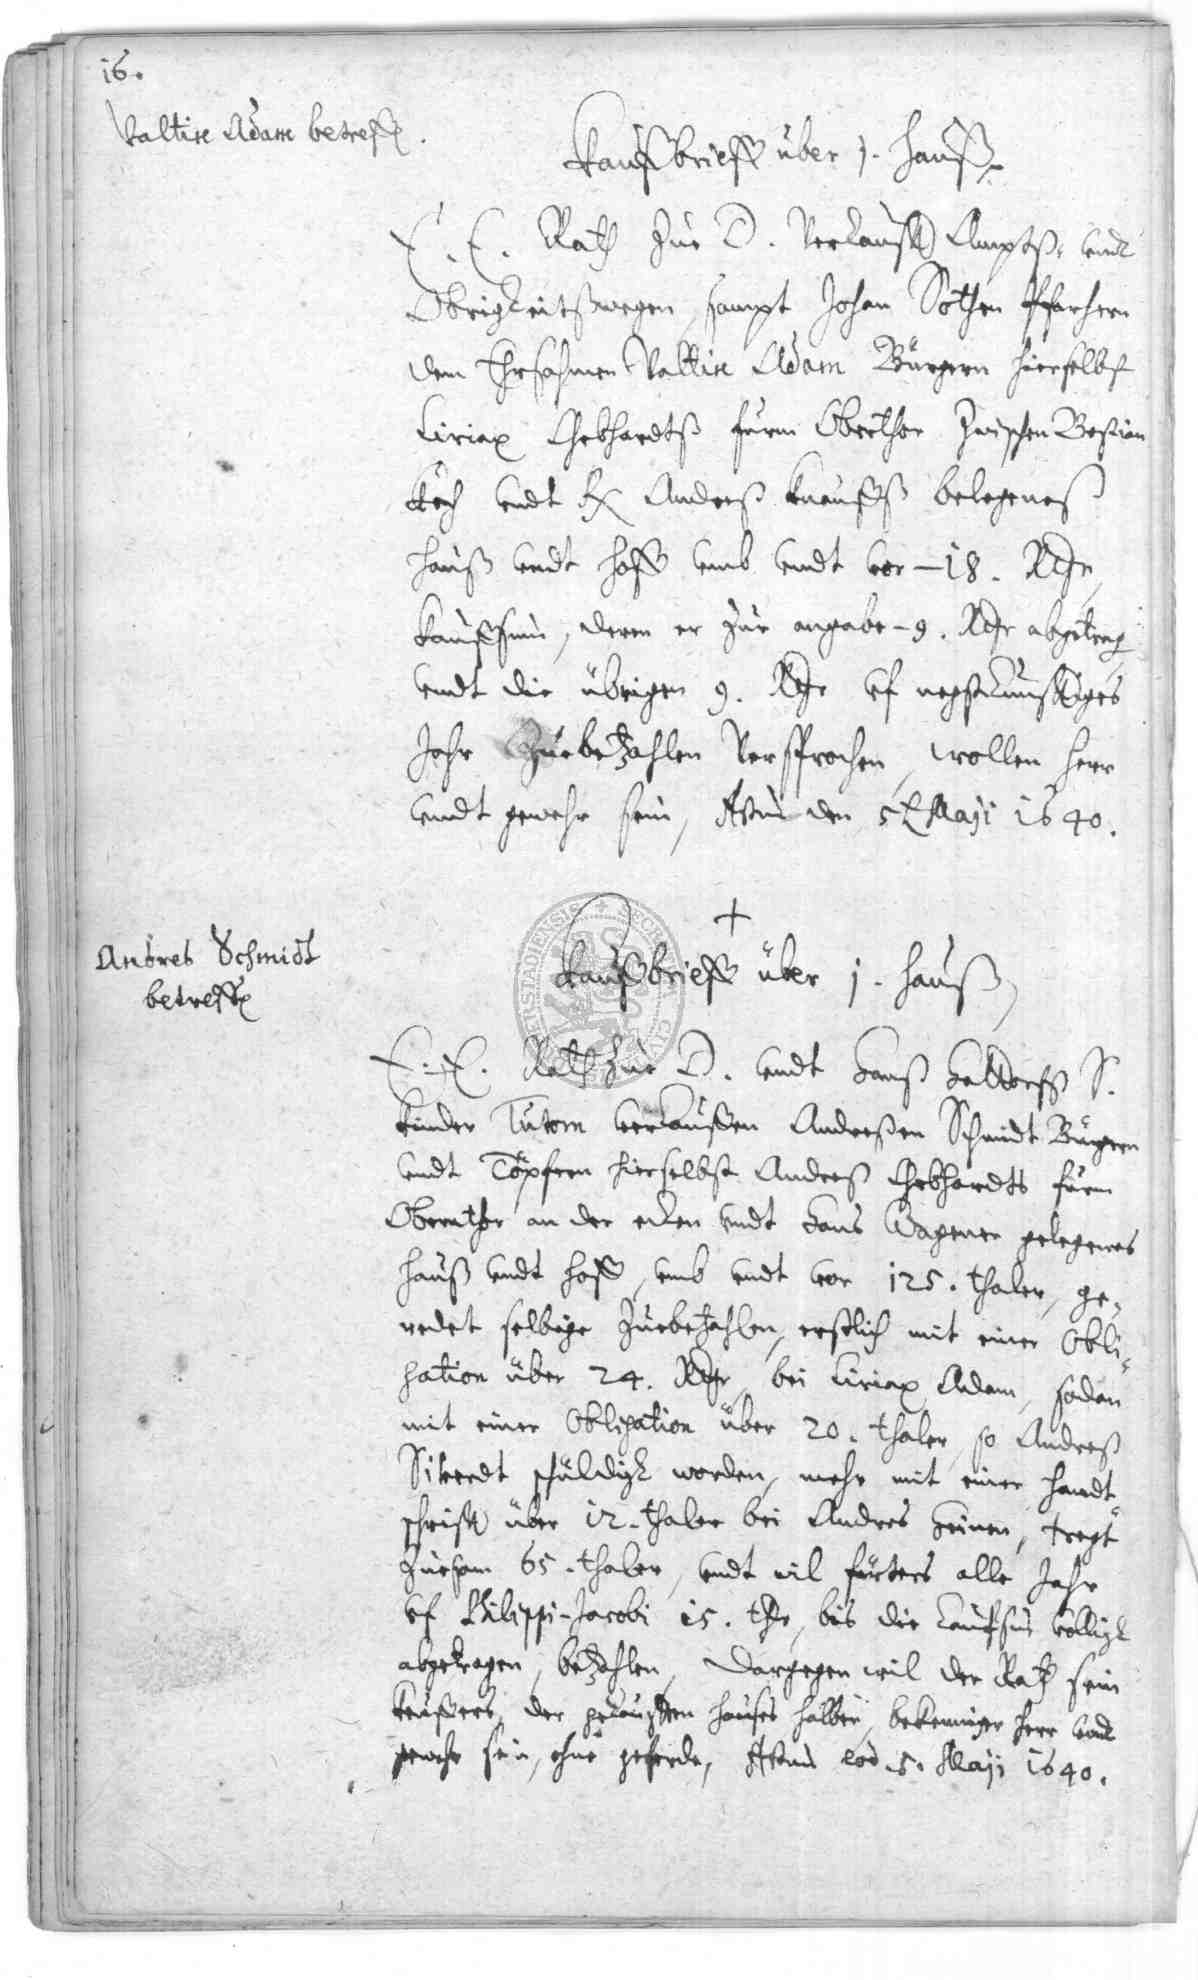 16.
Valtin Adam betreff.
Kauffbrieff über 1. Hauß.
E. E. Rath zue D. Verkaufft Ampts- undt
Obrigkeitßwegen, sampt Johan Bothen Pfarhern
dem Ehrsahmen Valtin Adam Bürgern hierselbst
Ciriax Gebhardtß fürm Oberthor zwischen Bastian
Koch undt Andreß Knauffß belegeneß
Hauß undt Hoff umb undt vor 18. Rthr
Kauffsum, deren er zur angabe 9. Rthr abgetrag
undt die übrigen 9. Rthr uf negstkunfftiges
Jahr zuebezahlen Versprochen, wollen Herr
undt gewehr sein, Actum den 5t Maji 1640.
+
Andres Schmidt
betreff
Kauffbrieff über 1. Hauß
E. E. Rath zue D. undt Hanß S.
Kinder Tutorn verkauffen Andreßen Schmidt Bürgern
undt Töpfern hierselbst Andreß Gebhardts fürm
Obernthor an der ecken undt Hans Wagener gelegenes
Hauß undt Hoff, umb undt vor 125. thaler, ge-
redet selbige zuebezahlen, erstlich mit einer Obli-
gation über 24. Rthr, bei Ciriax Adam, sodan
mit einer Obligation über 20. thaler, so Andreß
schüldigk worden, mehr mit einer Handt-
schrifft über 12. thaler bei Andres Heinen, tregt
zuesam 65. thaler, undt wil fürters alle Jahr
uf Philippi-Jacobi 15. thr, bis die Kaufsum völligk
abgetragen, bezahlen, Dargegen wil der Rath sein
Keuffers, der gekaufften Hauses halber, bekenniger Herr undt
gewehr sein, ohne geferde, Actum eod. 5. Maji 1640.